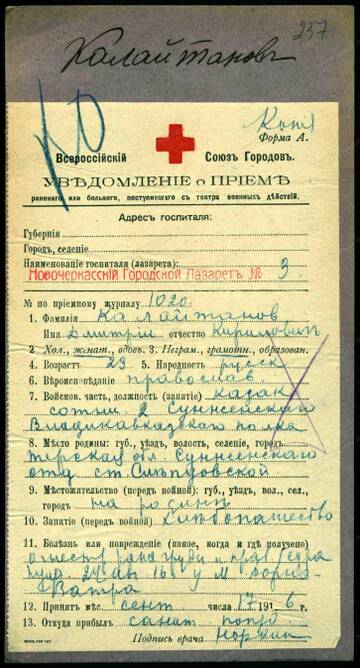 257
Калайтановъ
Форма А.
Всероссійскій Союзъ Городовъ.
УВѢДОМЛЕНІЕ о ПРІЕМѢ
раненаго или больного, поступившаго съ театра военныхъ дѣйствій.
Адресъ госпиталя:
Губернія
Городъ, селеніе
Наименованіе госпиталя (лазарета):
Новочеркасскій Городской Лазаретъ № 3
№ по пріемному журналу 1020
1. Фамилія Калайтановъ
Имя Дмитрій отчество Кириловичъ
2 Хол., женат., вдов. 3. Неграм., грамотн., образован.
4. Возрастъ 23 5. Народность русск
6. Вѣроисповѣданіе православ.
7. Войсков. часть, должность (занятіе) казак
сотни 2 Сунженскаго
Владикавказскаго полка
8. Мѣсто родины: губ., уѣздъ, волость, селеніе, городъ
Терская обл. Сунженскаго
отд. ст.
9. Мѣстожительство (передъ войной): губ., уѣздъ, вол., сел.,
городъ на родинѣ
10. Занятіе (передъ войной) хлѣбопашество
11. Болѣзнь или поврежденіе (какое, когда и гдѣ получено)
рана груди и прав.
у м. Дорна-
Ватра
12. Принятъ мѣс. сент числа 17 1916 г.
13. Откуда прибылъ санит.
Подпись врача